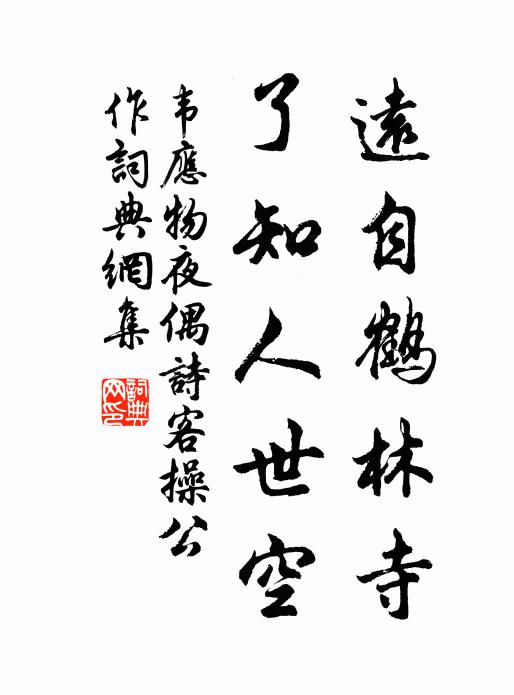 遠自鶴林寺
了知人世空
韦應物夜偶詩客操公
作詞典網集
詞典網印